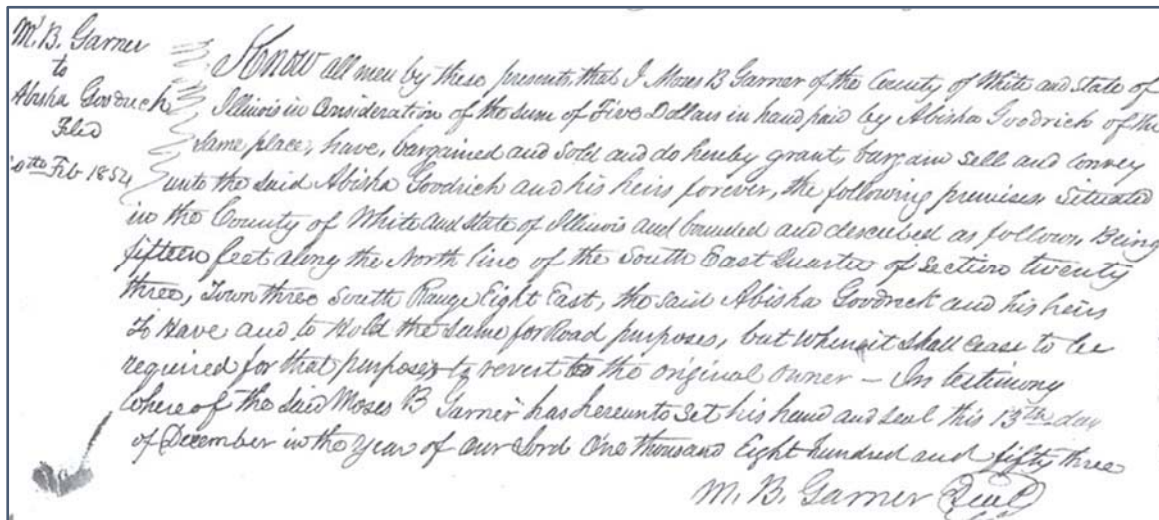 M. B. Garner
to
Abisha Goodrich
Filed
Feb 1854
Know all men by these presents, that I Moses B Garner of the County of White and State of
Illinois in Consideration of the sum of Five Dollars in hand paid by Abisha Goodrich of the
same place, have, bargained and sold and do hereby grant, bargain sell and convey
unto the said Abisha Goodrich and his heirs forever, the following premises situated
in the County of White and State of Illinois and bounded and described as follows, Being
fifteen feet along the North line of the South East Quarter of Section twenty
three, Town three South Range Eight East, the said Abisha Goodrick and his heirs
To Have and to Hold the same for Road purposes, but when it shall cease to be
required for that purposes to revert to the original owner — In testimony
where of the said Moses B Garner has hereunto set his hand and seal this 13th day
of December in the year of our Lord One thousand Eight hundred and fifty three
M. B. Garner Seal